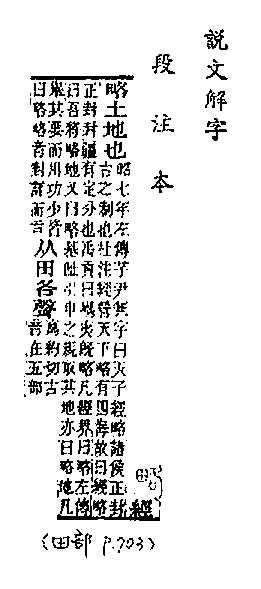 說文解字
段注本
經
略土地也
昭七年左傳芋尹無宇曰天子經略諸侯正封
古之制也杜注經營天下略有四海故曰經略
正封封疆有定分也禹貢曰嵎夷既略凡經界曰略左傳
曰吾將略地又曰略基址引申之規取其地亦曰略地凡
舉其要而用功少皆
曰略略者對詳而言
从田各聲
烏約切古
音在五部
(田部 P.703)